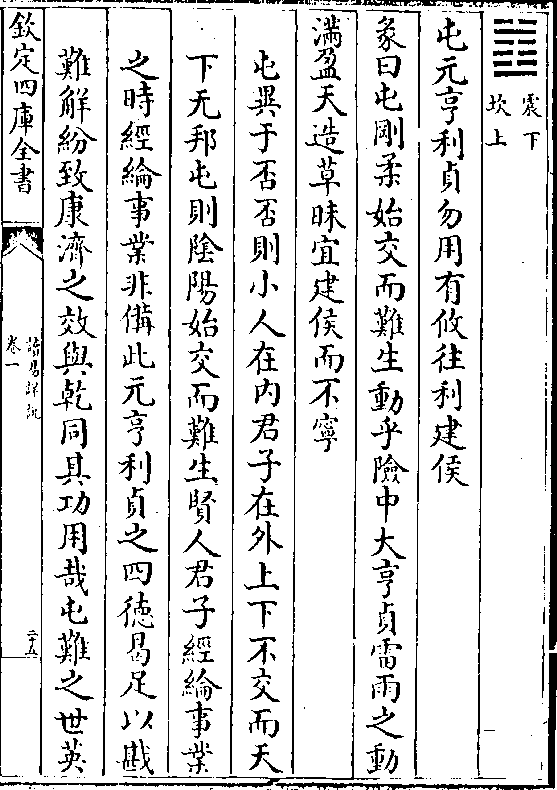 ䷂ 震下
坎上
屯元亨利貞勿用有攸往利建侯
彖曰屯剛柔始交而難生動乎險中大亨貞雷雨之動
滿盈天造草昧宜建侯而不寧
屯異于否否則小人在內君子在外上下不交而天
下无邦屯則陰陽始交而難生賢人君子經綸事業
之時經綸事業非備此元亨利貞之四徳曷足以戡
難解紛致康濟之效與乾同其功用哉屯難之世英
欽定四庫全書
讀易詳說
卷一
二十五